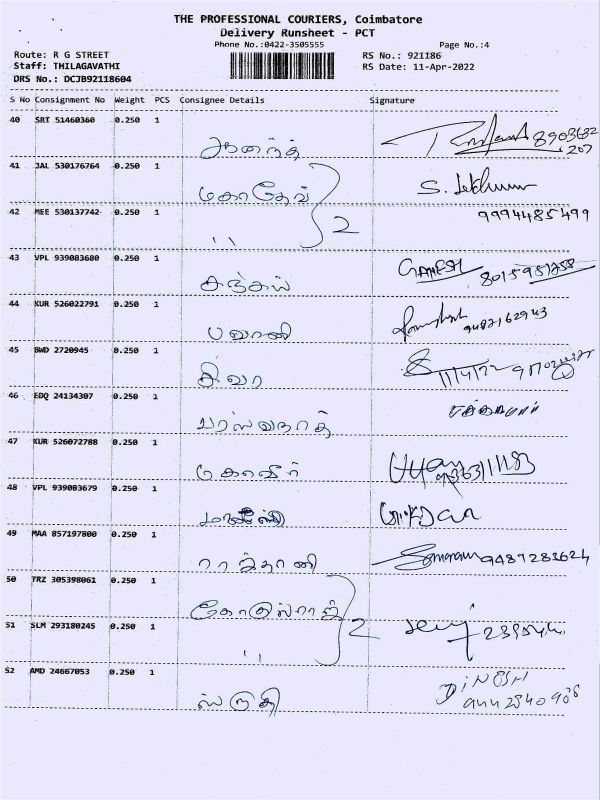 THE PROFESSIONAL COURIERS, Coimbatore
Delivery Runsheet - PCT
Phone No.:0422-3505555 Page No.:4
Route: R G STREET RS No.: 921186
Staff: THILAGAVATHI RS Date: 11-Apr-2022
DRS No.: DCJB92118604
S No Consignment No Weight PCS Consignee Details Signature
40 SRT 51460360 0.250 1 ஆனந்த்
41 JAL 530176764 0.250 1 மகாதேவ்
42 MEE 530137742 0.250 1 " 2 9994485499
43 VPL 939083680 0.250 1 சஞ்சய் GANESH
44 KUR 526022791 0.250 1 பவானி 9487162943
45 BWD 2720945 0.250 1 சிவா 11/4/22
46 EDQ 24134307 0.250 1 பரஸ்வநாத்
47 KUR 526072788 0.250 1 மகாவீர் 9363111183
48 VPL 939083679 0.250 1
49 MAA 857197800 0.250 1 ராஜ்தானி 9487283624
50 TRZ 305398061 0.250 1 கோகுல்ராஜ்
51 SLM 293180245 0.250 1 " 2
52 AMD 24667053 0.250 1 ஸ்ருதி DINESH